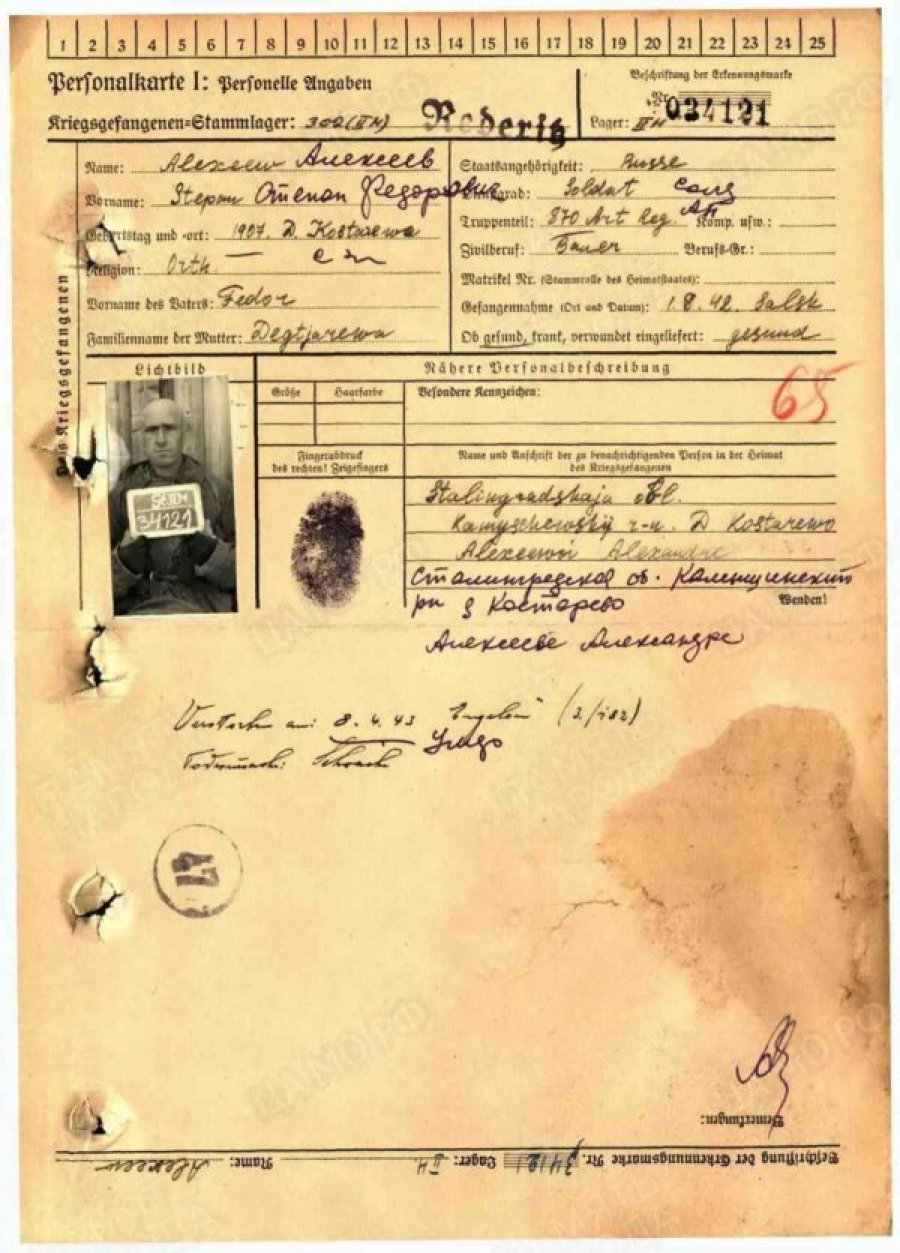 1 2 3 4 5 6 7 8 9 10 11 12 13 14 15 16 17 18 19 20 21 22 23 24 25
Personalkarte I: Personelle Angaben
Beschriftung der Erkennungsmarke
Kriegsgefangenen=Stammlager: 302 (II H) Rederitz
Nr. 034121
Lager: II H
Des Kriegsgefangenen
Name: Alexeew Алексеев
Vorname: Stepan Степан Федорович
Geburtstag und -ort: 1907. D. Kostarewa
Religion: Orth.
Vorname des Vaters: Fedor
Familienname der Mutter: Degtjarewa
Staatsangehörigkeit: Russe
Dienstgrad: Soldat солд
Truppenteil: 870 Art Reg. АП Komp. usw.:
Zivilberuf: Bauer Berufs-Gr.:
Matrikel Nr. (Stammrolle des Heimatstaates):
Gefangennahme (Ort und Datum): 1.8.42. Salsk
Ob gesund, krank, verwundet eingeliefert: gesund
Lichtbild
Nähere Personalbeschreibung
Größe
Haarfarbe
Besondere Kennzeichen:
65
Fingerabdruck
des rechten! Zeigefingers
Name und Anschrift der zu benachrichtigenden Person in der Heimat
des Kriegsgefangenen
34121
Stalingradskaja obl.
Kamyschewskij r-n. D Kostarewo
Alexeewoi Alexandre
Сталинградская об. Камышинский
рн д Костарево
Wenden!
Алексеевe Александре
8.4.43
Bemerkungen:
Beschriftung der Erkennungsmarke Nr. 34121 Lager: II H. Name: Alexeew